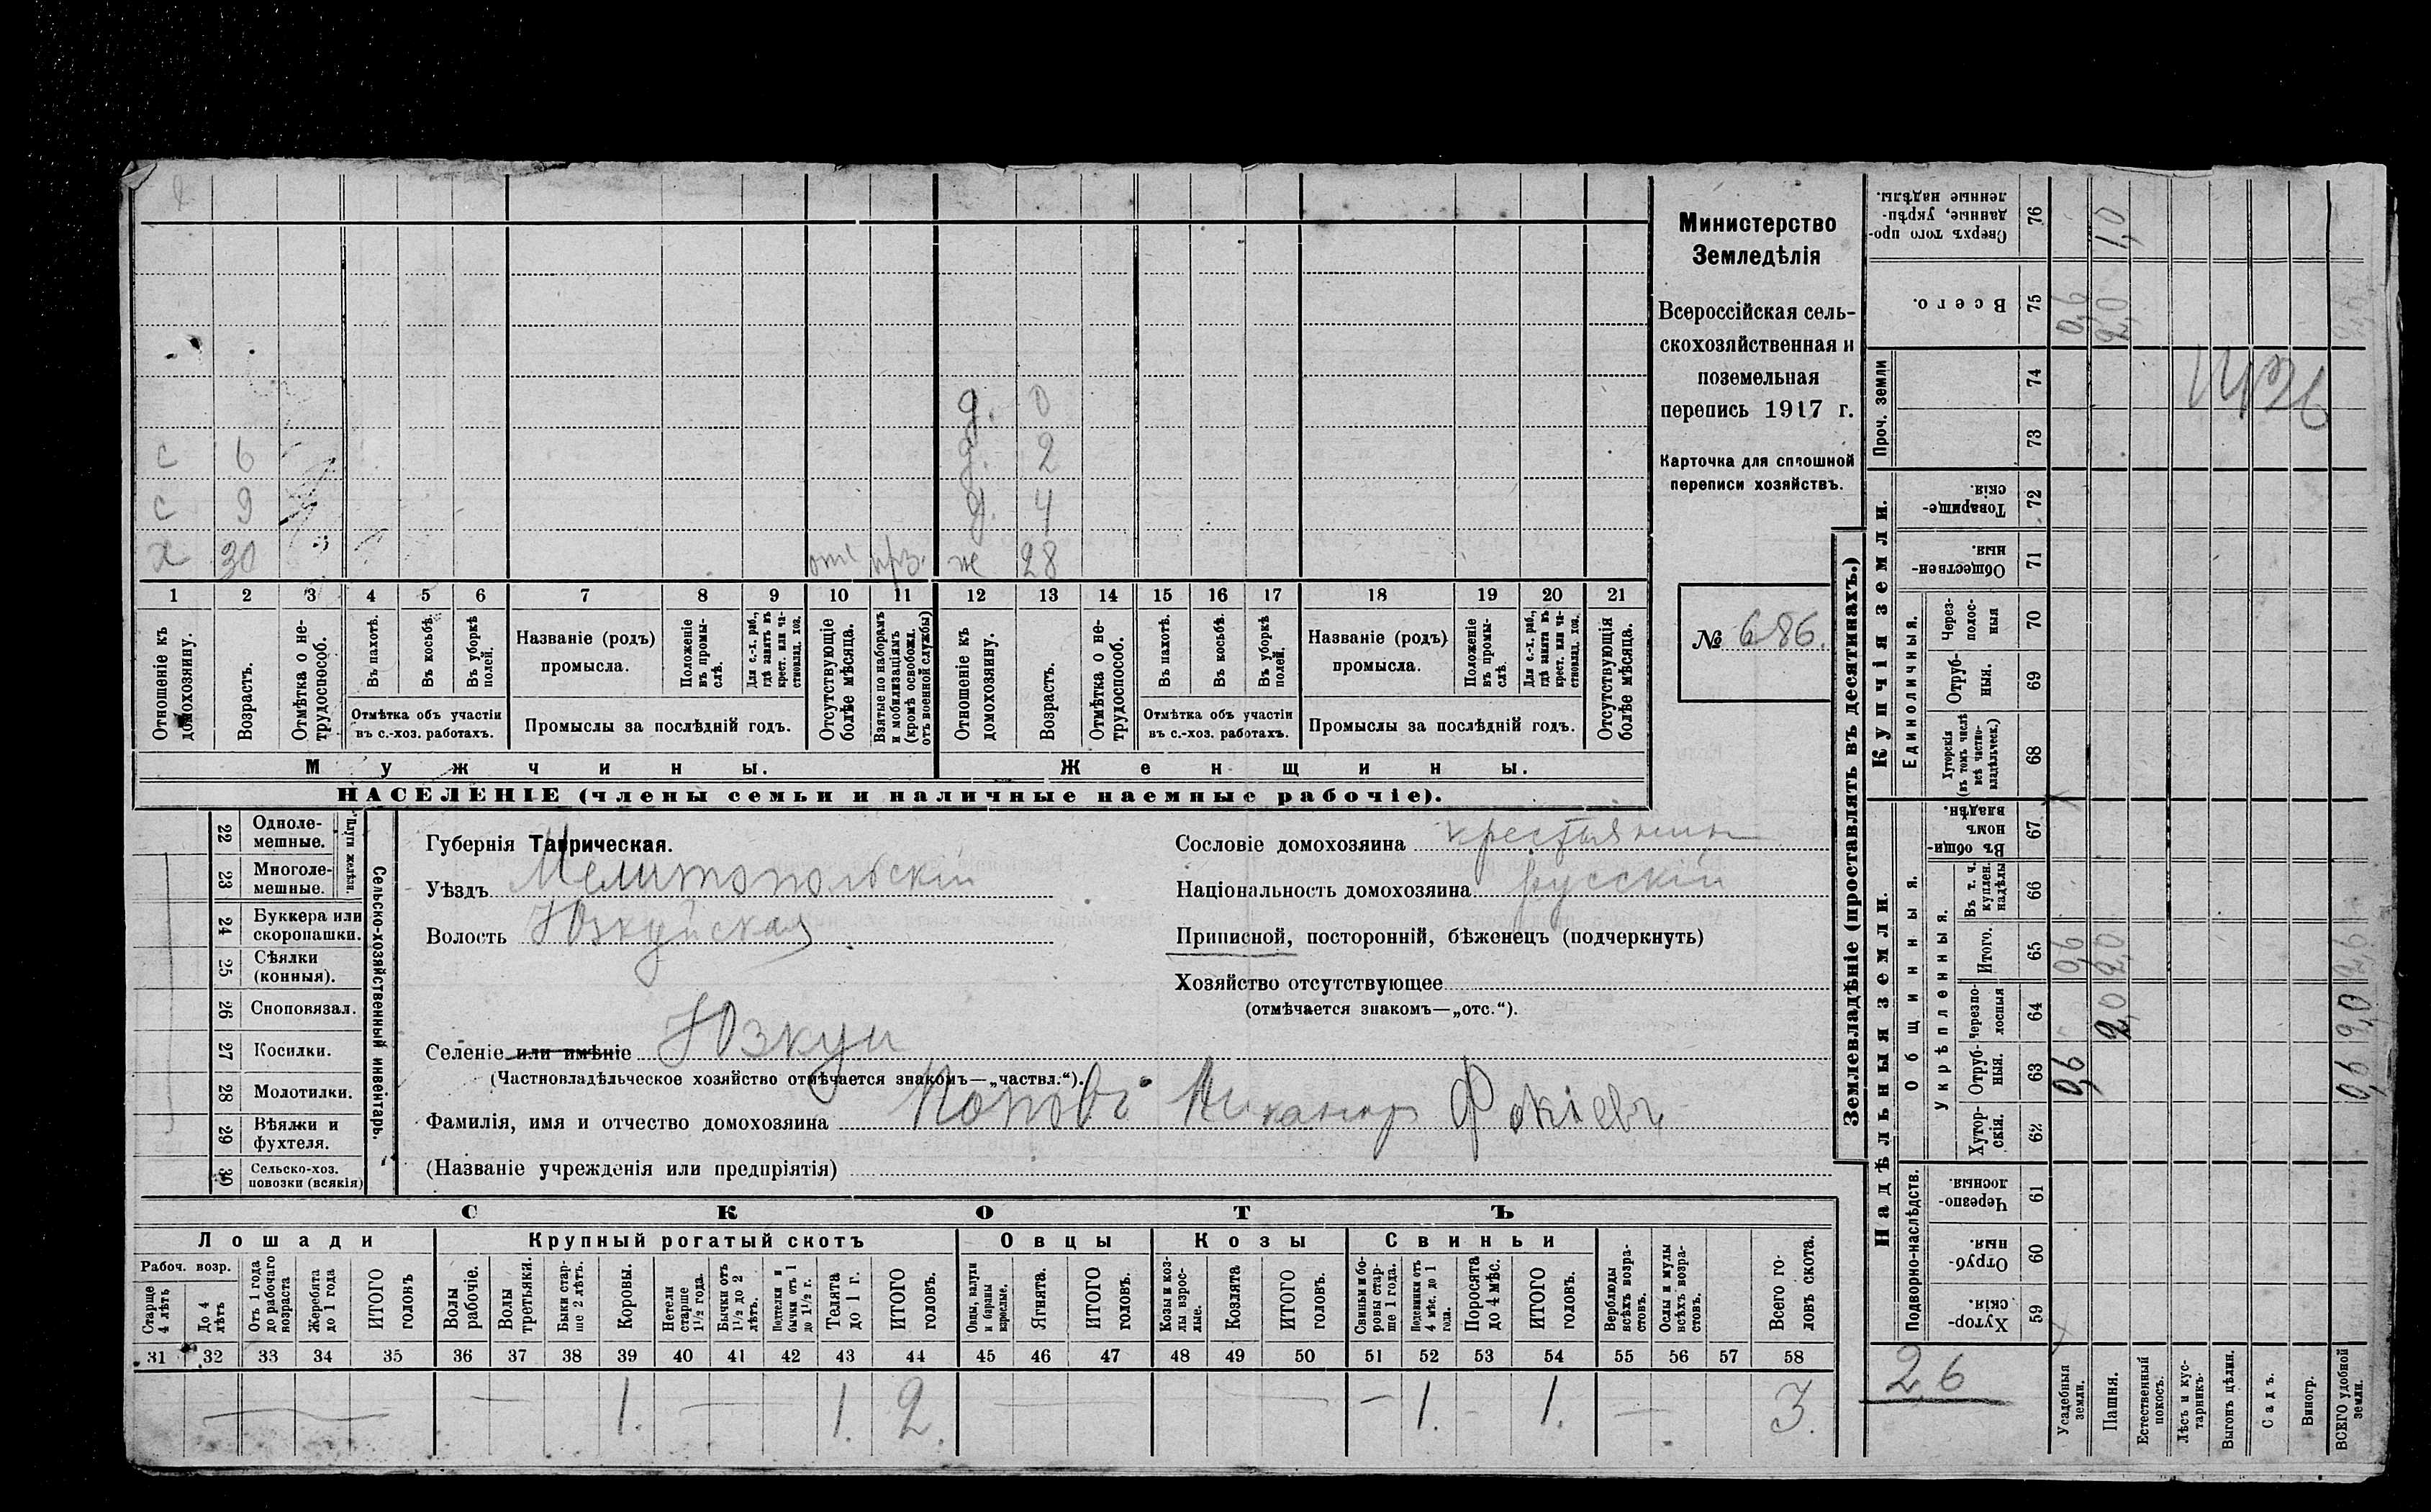 д. 0
с 6 д. 2
с 9 д. 4
х 30 отс ж 28
1 2 3 4 5 6 7 8 9 10 11 12 13 14 15 16 17 18 19 20 21
Отношеніе къ домохозяину.
Возрастъ.
Отмѣтка о не-трудоспособ.
Въ пахотѣ.
Въ косьбѣ.
Въ уборкѣ полей.
Отмѣтка объ участіи въ с.-хоз. работахъ.
Названіе (родъ) промысла.
Положеніе въ промы-слѣ.
Для с.-х. раб., гдѣ занятъ въ крест. или ча-стновлад. хоз.
Промыслы за послѣдній годъ.
Отсутствующіе болѣе мѣсяца.
Взятые по наборамъ и мобилизаціямъ (кромѣ освобожд. отъ военной службы)
Отношеніе къ домохозяину.
Возрастъ.
Отмѣтка о не-трудоспособ.
Въ пахотѣ.
Въ косьбѣ.
Въ уборкѣ полей.
Отмѣтка объ участіи въ с.-хоз. работахъ.
Названіе (родъ) промысла.
Положеніе въ промы-слѣ.
Для с.-х. раб., гдѣ занята въ крест. или ча-стновлад. хоз.
Промыслы за послѣдній годъ.
Отсутствующія болѣе мѣсяца.
Мужчины.
Женщины.
НАСЕЛЕНІЕ (члены семьи и наличные наемные рабочіе).
Министерство
Земледѣлія
Всероссійская сель-
скохозяйственная и
поземельная
перепись 1917 г.
Карточка для сплошной
переписи хозяйствъ.
№ 686.
22 Одноле-мешные.
23 Многоле-мешные.
Плуги желѣзн.
24 Буккера или скоропашки.
25 Сѣялки (конныя).
26 Сноповязал.
27 Косилки.
28 Молотилки.
29 Вѣялки и фухтеля.
30 Сельско-хоз. повозки (всякія)
Сельско-хозяйственный инвентарь.
Губернія Таврическая.
Уѣздъ Мелитопольскій
Волость Юзкуйская
Сословіе домохозяина крестьянин
Національность домохозяина русскій
Приписной, посторонній, бѣженецъ (подчеркнуть)
Хозяйство отсутствующее
(отмѣчается знакомъ—„отс.“).
Селеніе или имѣніе Юзкуи
(Частновладѣльческое хозяйство отмѣчается знакомъ—„частвл.“).
Фамилія, имя и отчество домохозяина Поповъ Никанор Фокіевъ
(Названіе учрежденія или предпріятія)
СКОТЪ
Лошади
Крупный рогатый скотъ
Овцы
Козы
Свиньи
Рабоч. возр.
Старше 4 лѣтъ
До 4 лѣтъ
Отъ 1 года до рабочаго возраста
Жеребята до 1 года
ИТОГО головъ
Волы рабочіе.
Волы третьяки.
Быки стар-ше 2 лѣтъ.
Коровы.
Нетели старше 1½ года.
Бычки отъ 1½ до 2 лѣтъ.
Подтелки и бычки отъ 1 до 1½ г.
Телята до 1 г.
ИТОГО головъ.
Овцы, валухи и бараны взрослые.
Ягнята.
ИТОГО головъ.
Козы и коз-лы взрос-лые.
Козлята
ИТОГО головъ.
Свиньи и бо-ровы стар-ше 1 года.
Подсвинки отъ 4 мѣс. до 1 года.
Поросята до 4 мѣс.
ИТОГО головъ.
Верблюды всѣхъ возра-стовъ.
Ослы и мулы всѣхъ возра-стовъ.
Всего го-ловъ скота.
31 32 33 34 35 36 37 38 39 40 41 42 43 44 45 46 47 48 49 50 51 52 53 54 55 56 57 58
— — 1. — 1. 2. — — — 1. - 1. — 3.
Землевладѣніе (проставлять въ десятинахъ.)
Надѣльныя земли.
Купчія земли.
Проч. земли
Подворно-наслѣдств.
Общинныя.
Укрѣпленныя.
Единоличныя.
Хутор-скія. 59
Отруб-ныя. 60
Черезпо-лосныя. 61
Хутор-скія. 62
Отруб-ныя. 63
Черезпо-лосныя 64
Итого. 65
Въ т. ч. куплен. надѣлы 66
Въ общин-номъ владѣн. 67
Хуторскія (въ томъ числѣ всѣ частно-владѣльческ.) 68
Отруб-ныя. 69
Через-полос-ныя 70
Обществен-ныя. 71
Товарище-скія. 72
73
74
Всего. 75
Сверхъ того про-данные, укрѣп-ленные надѣлы. 76
26
Усадебныя земли. 0,6 0,6 0,6
Пашня. 2,0 2,0 2,0 1,0
Естественный покосъ.
Лѣсъ и кус-тарникъ.
Выгонъ цѣлин.
Садъ.
Виногр.
ВСЕГО удобной земли. 0,6 2,0 2,6 2,6